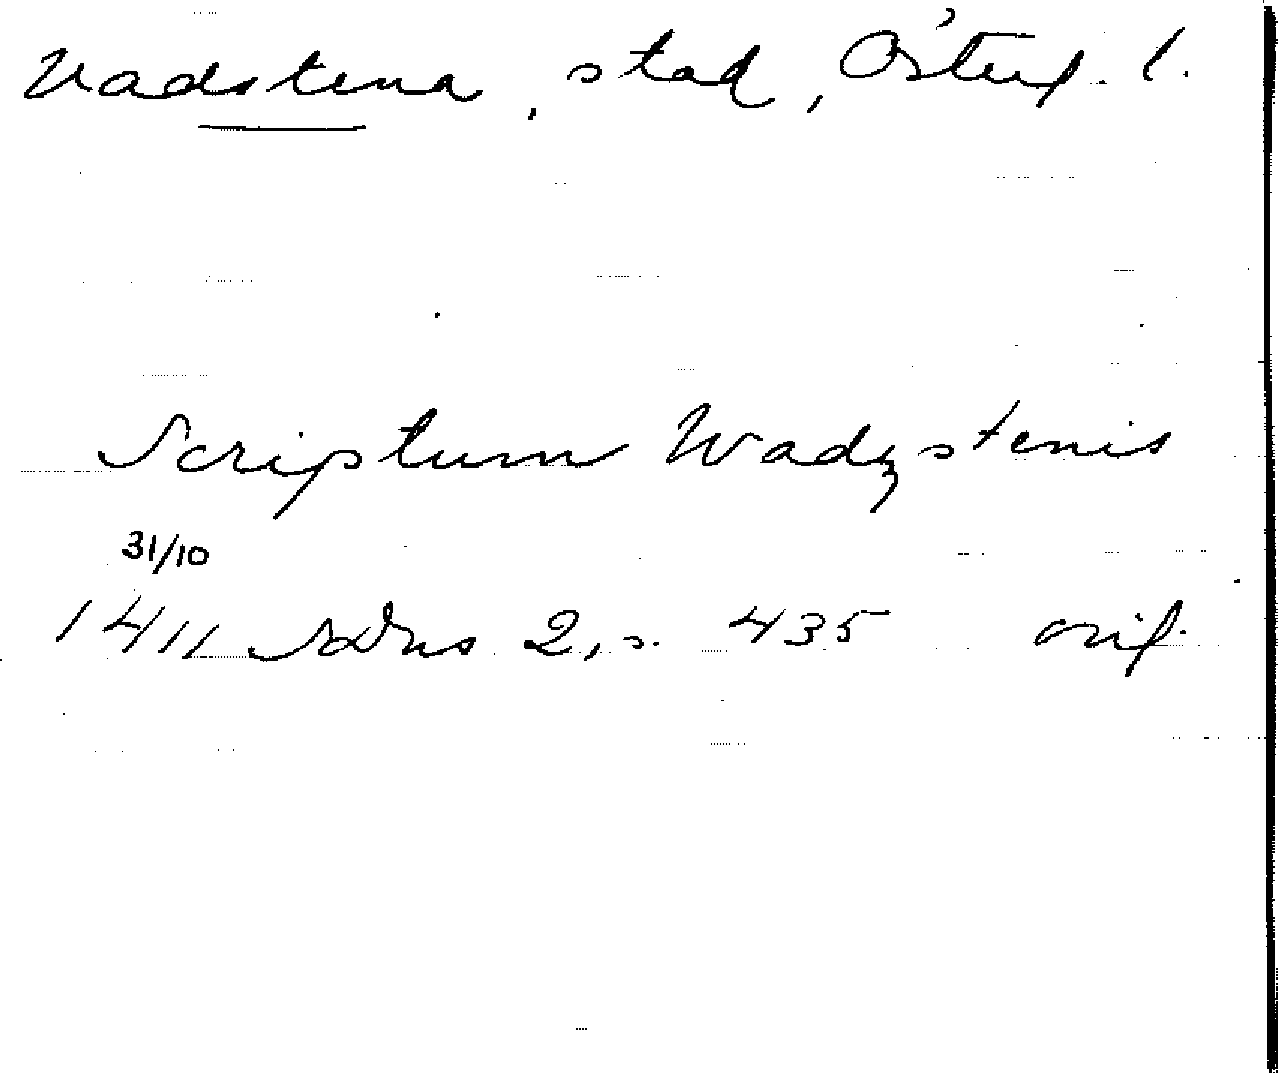 Vadstena, stad, Österg. l.
Scriptum Wadzstenis
31/10
1411 SDns 2, s. 435 orig.